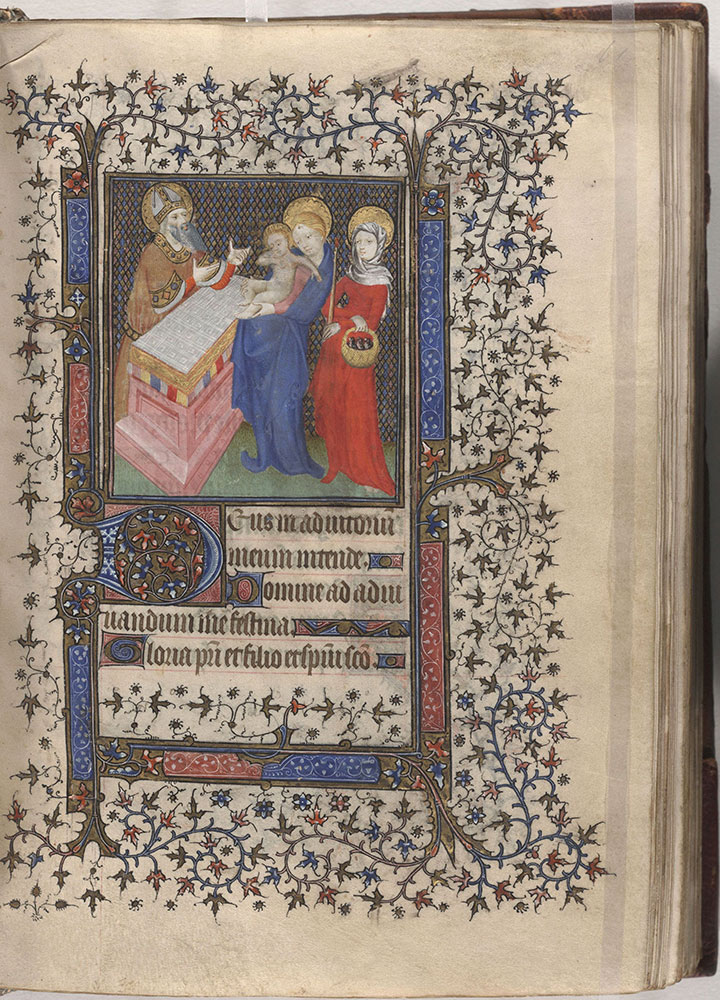 Deus in adiutoriu
meum intende.
Domine ad adiu
uandum me festina.
Gloria pri et filio et spiui sco.